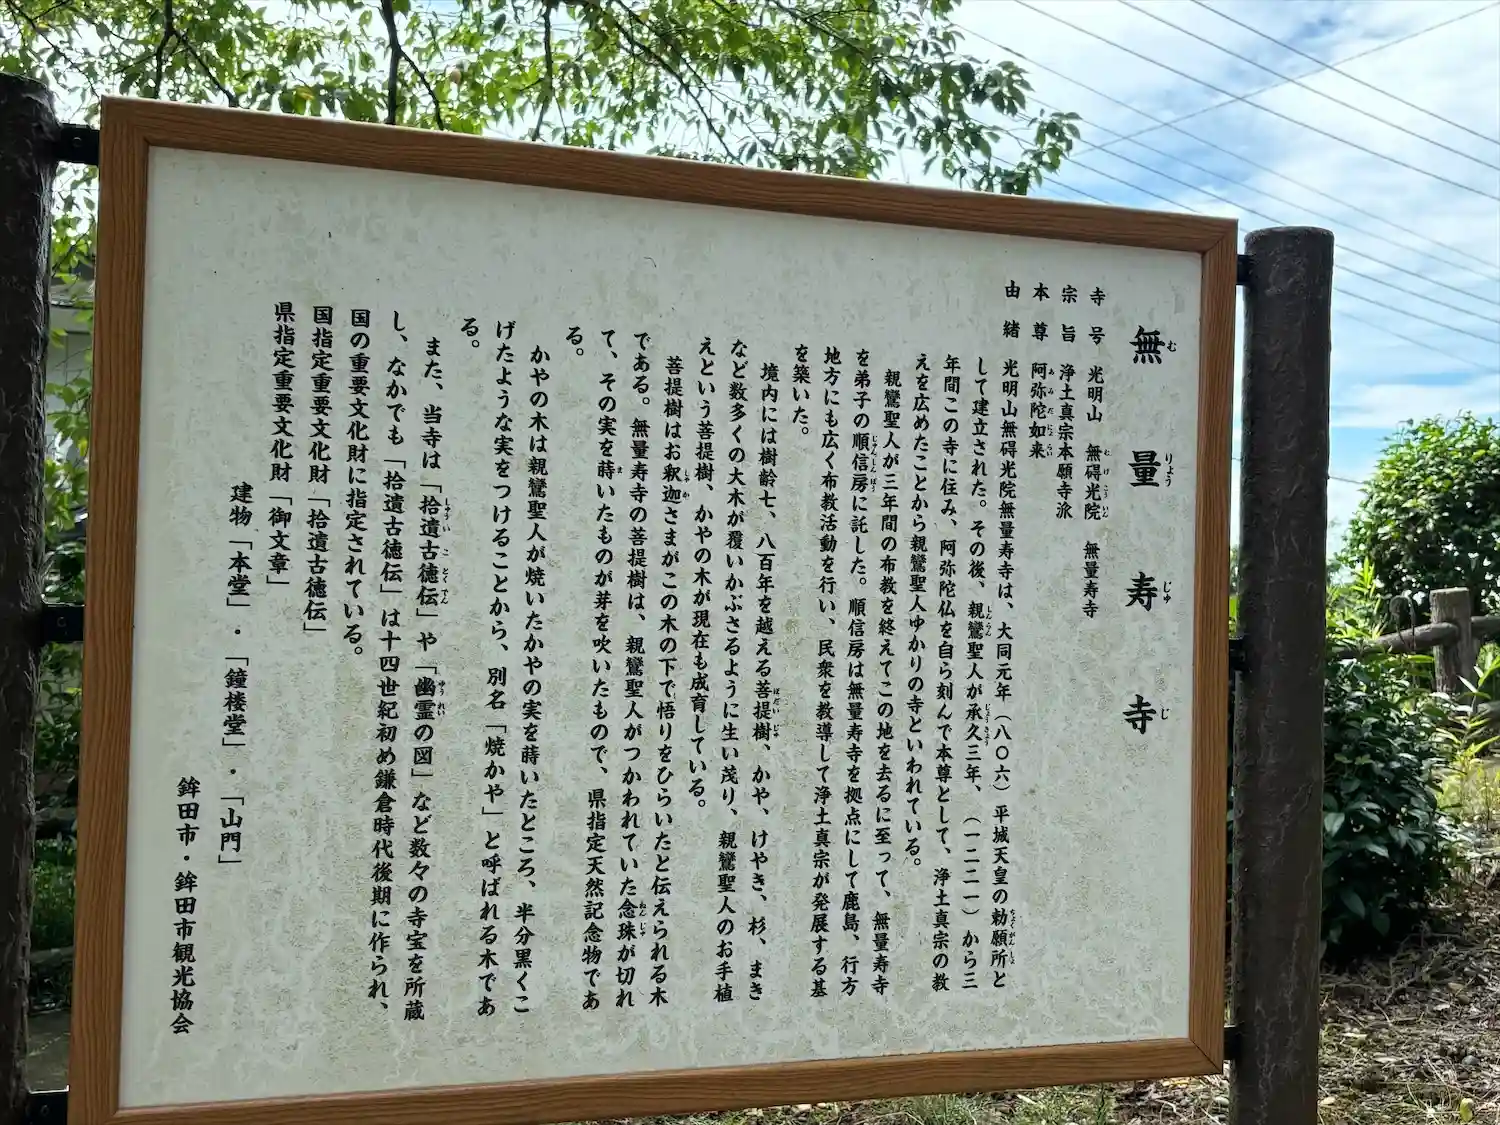 無量寿寺
寺号 光明山 無碍光院 無量寿寺
宗旨 浄土真宗本願寺派
本尊 阿弥陀如来
由緒 光明山無碍光院無量寿寺は、大同元年（八〇六）平城天皇の勅願所と
して建立された。その後、親鸞聖人が承久三年、（一二二一）から三
年間この寺に住み、阿弥陀仏を自ら刻んで本尊として、浄土真宗の教
えを広めたことから親鸞聖人ゆかりの寺といわれている。
親鸞聖人が三年間の布教を終えてこの地を去るに至って、無量寿寺
を弟子の順信房に託した。順信房は無量寿寺を拠点にして鹿島、行方
地方にも広く布教活動を行い、民衆を教導して浄土真宗が発展する基
を築いた。
境内には樹齢七、八百年を越える菩提樹、かや、けやき、杉、まき
など数多くの大木が覆いかぶさるように生い茂り、親鸞聖人のお手植
えという菩提樹、かやの木が現在も成育している。
菩提樹はお釈迦さまがこの木の下で悟りをひらいたと伝えられる木
である。無量寿寺の菩提樹は、親鸞聖人がつかわれていた念珠が切れ
て、その実を蒔いたものが芽を吹いたもので、県指定天然記念物であ
る。
かやの木は親鸞聖人が焼いたかやの実を蒔いたところ、半分黒くこ
げたような実をつけることから、別名「焼かや」と呼ばれる木であ
る。
また、当寺は「拾遺古徳伝」や「幽霊の図」など数々の寺宝を所蔵
し、なかでも「拾遺古徳伝」は十四世紀初め鎌倉時代後期に作られ、
国の重要文化財に指定されている。
国指定重要文化財「拾遺古徳伝」
県指定重要文化財「御文章」
建物「本堂」・「鐘楼堂」・「山門」
鉾田市・鉾田市観光協会